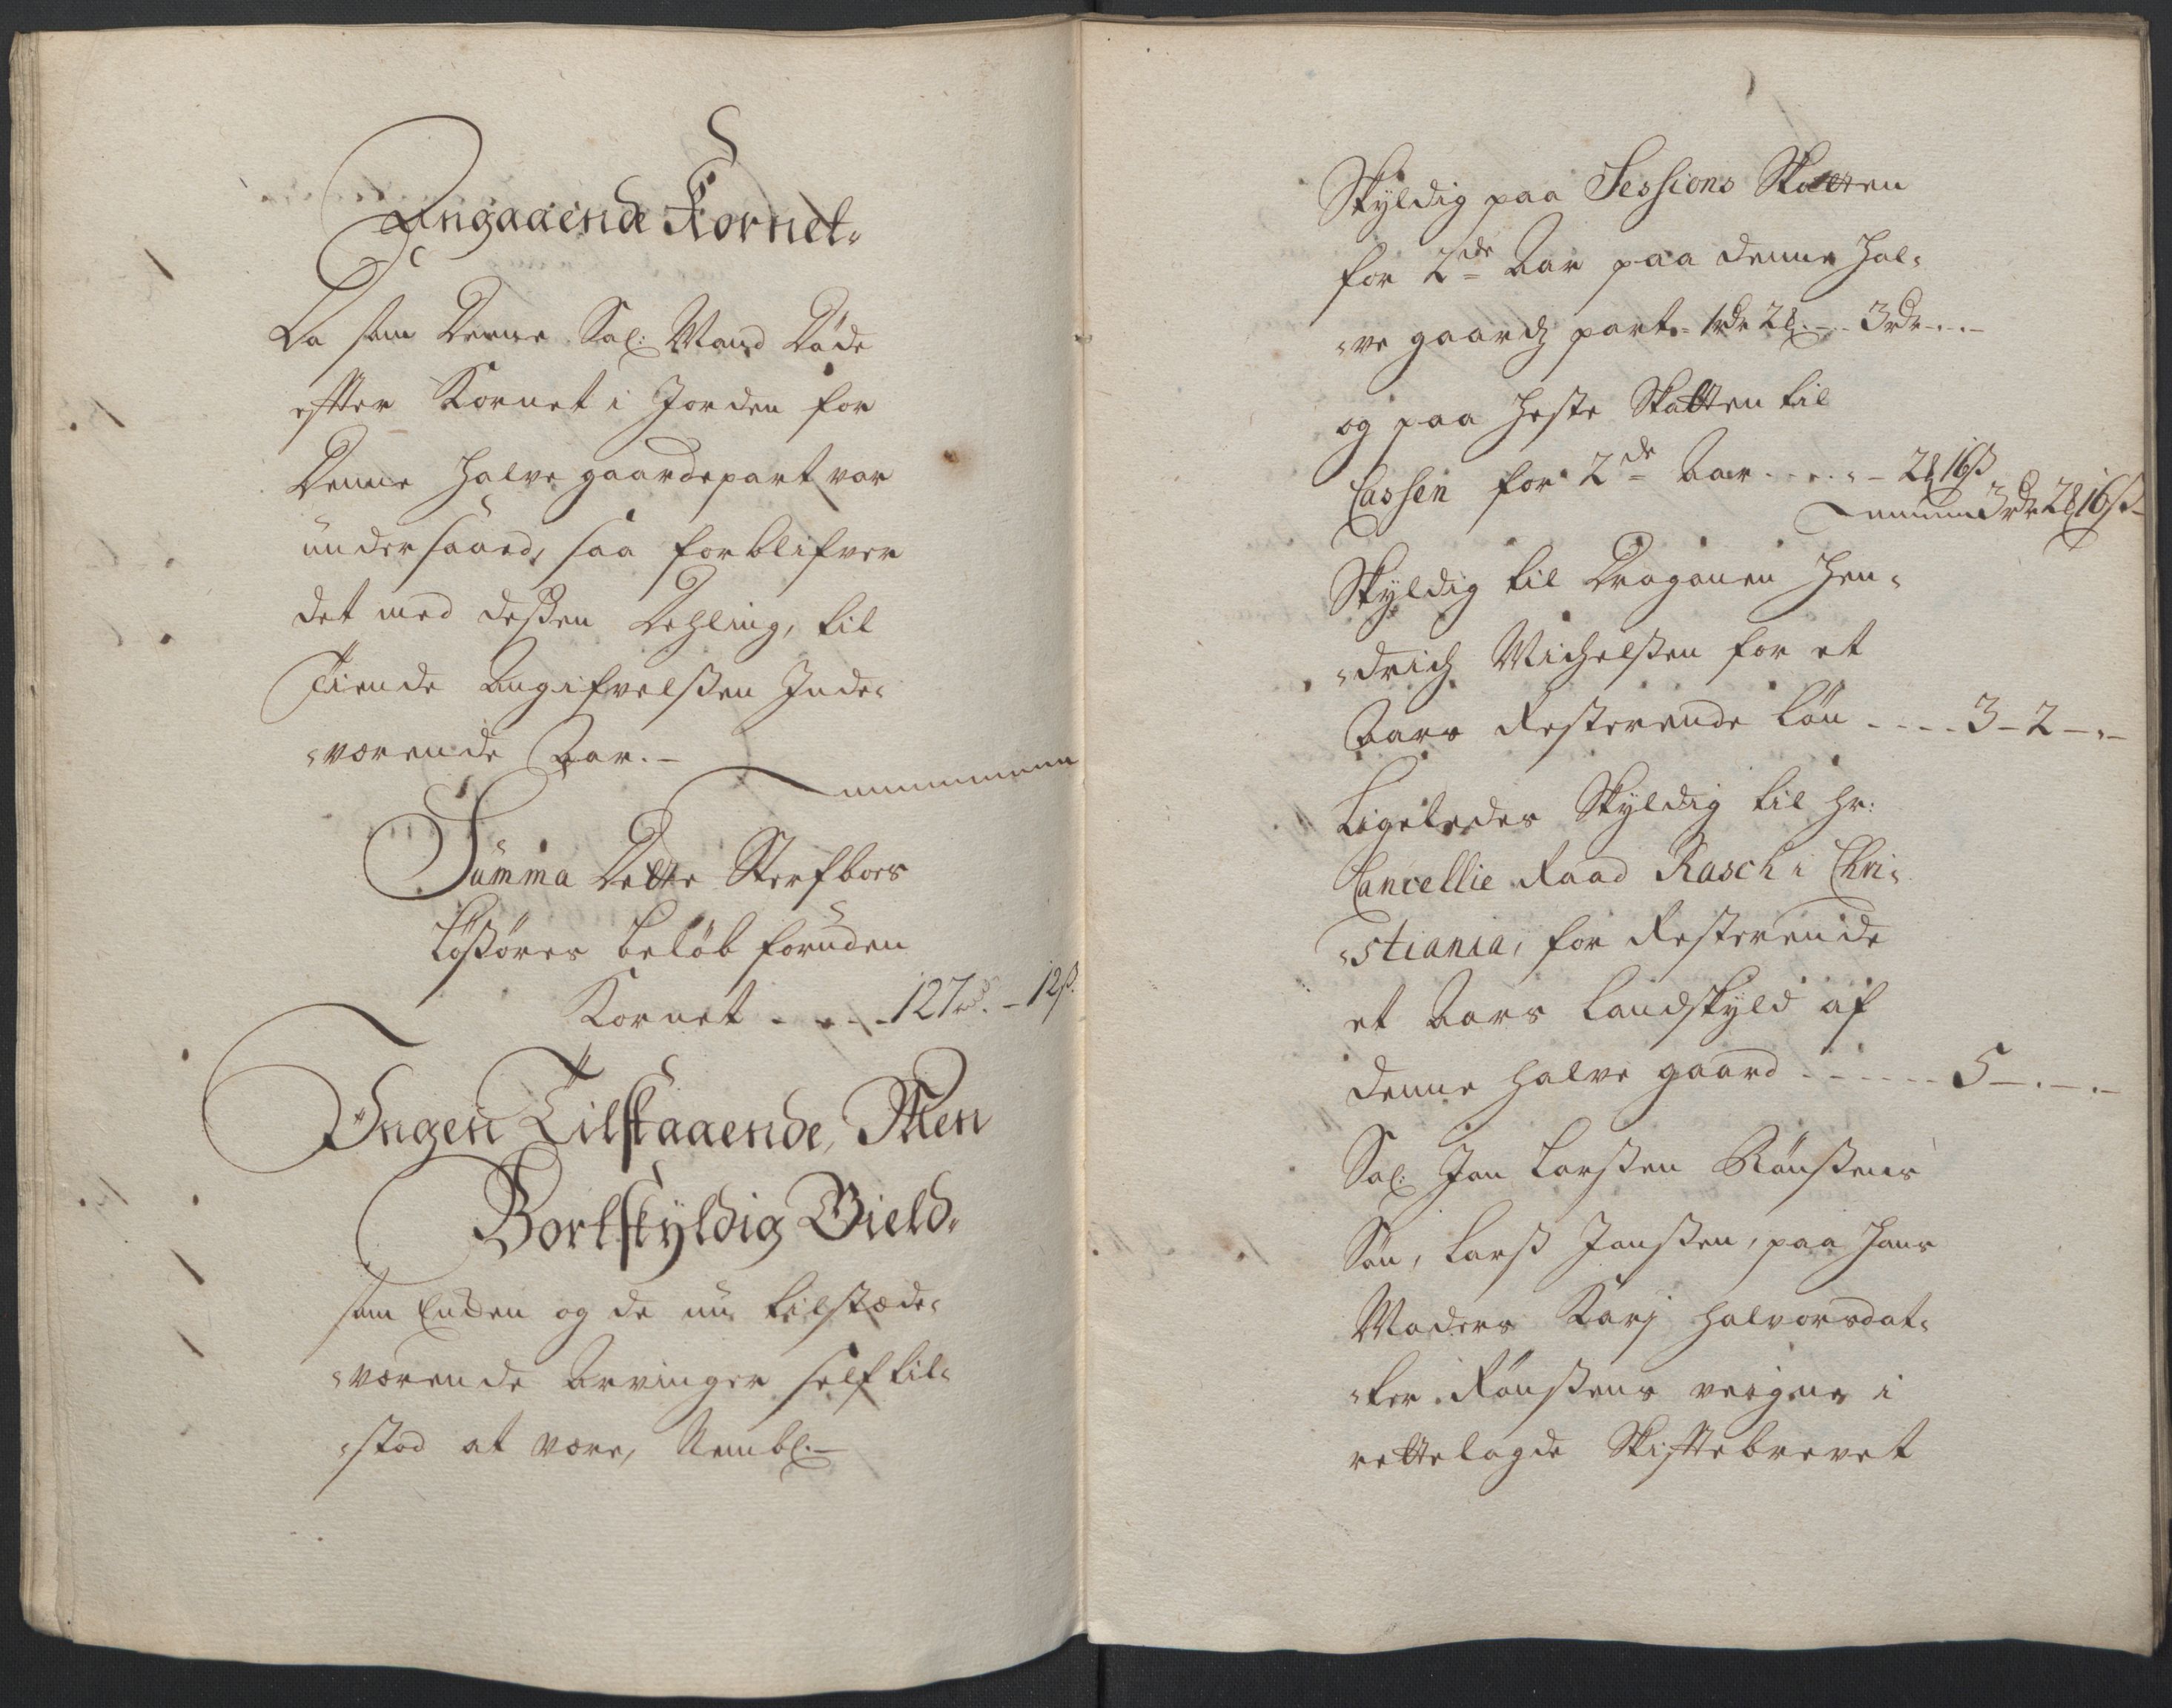 Angaaende Kornet.
Da som Denne Sal: Mand Døde
efter Kornet i Jorden for
Denne halve gaardepart var
undersaaed, saa forblifver
det med dessen Dehling, til
Tiende Angifvelssen Inde-
-værende Aar.-
Summa Dette Sterfboes
Løssøres beløb foruden
Kornet - - - - 127 rd. - 12 ß.
Ingen Tilstaaende, Men
Bortskyldig Gield.
som Encken og de nu tilstæde-
-værende Arvinger self til-
-stod at være, Nembl:-
Skyldig paa Sessions Skatten
for 2de Aar paa denne hal-
-ve gaards part - 1 rdr 2 ℔ - - 3 rdr - . -
og paa Heste Skatten til
Cassen for 2de Aar - - - - 2 ℔ 16 ß
3 rdr 2 ℔ 16 ß -
Skyldig til Dragonen Hen-
-drich Michelssen for et
Aars Resterende Løn - - - - 3 - 2 - . -
Ligeledes Skyldig til Hr:
Cancellie Raad Rasch i Chri-
-stiania, for Resterende
et Aars Landskyld af
denne halve gaard - - - - - - 5 - . - . -
Sal: Jon Larssen Rønssens
Søn, Larss Jonssen, paa Hans
Moders Karj Halvorsdat-
-ter Rønssens veigne i
rettelagde Skiftebrevet